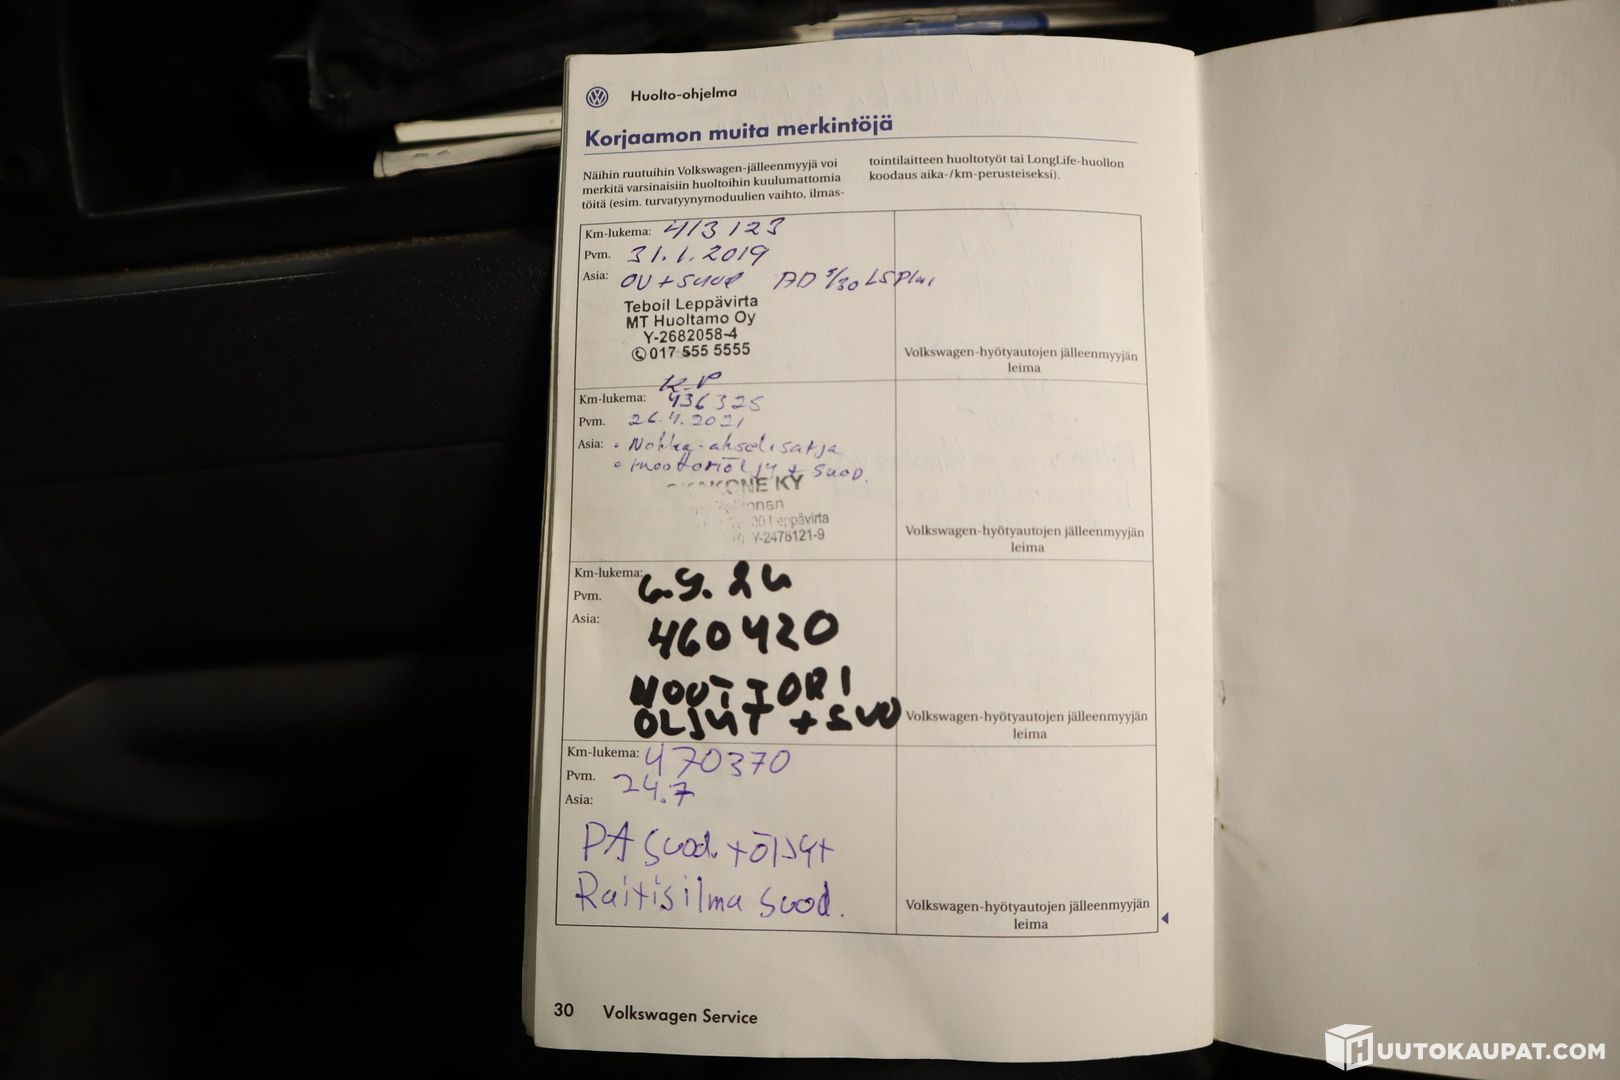 Huolto-ohjelma
Korjaamon muita merkintöjä
Näihin ruutuihin Volkswagen-jälleenmyyjä voi
merkitä varsinaisiin huoltoihin kuulumattomia
töitä (esim. turvatyynymoduulien vaihto, ilmas-
tointilaitteen huoltotyöt tai LongLife-huollon
koodaus aika-/km-perusteiseksi).
Km-lukema: 413123
Pvm. 31.1.2019
Asia: OV + suod AD 5/30 LS Plus
Teboil Leppävirta
MT Huoltamo Oy
Y-2682058-4
017 555 5555
Volkswagen-hyötyautojen jälleenmyyjän
leima
K.P
Km-lukema: 436325
Pvm. 26.4.2021
Asia: • Nokka-akselisarja
• moottoriöljy + suod.
KONE KY
Leppävirta
Y-2478121-9
Volkswagen-hyötyautojen jälleenmyyjän
leima
Km-lukema: 6.9.24
Pvm.
Asia:
460420
MOOTTORI
ÖLJYT + SUO
Volkswagen-hyötyautojen jälleenmyyjän
leima
Km-lukema: 470370
Pvm. 24.7
Asia:
PA suod. + öljyt
Raitisilma suod.
Volkswagen-hyötyautojen jälleenmyyjän
leima
30 Volkswagen Service
HUUTOKAUPAT.COM